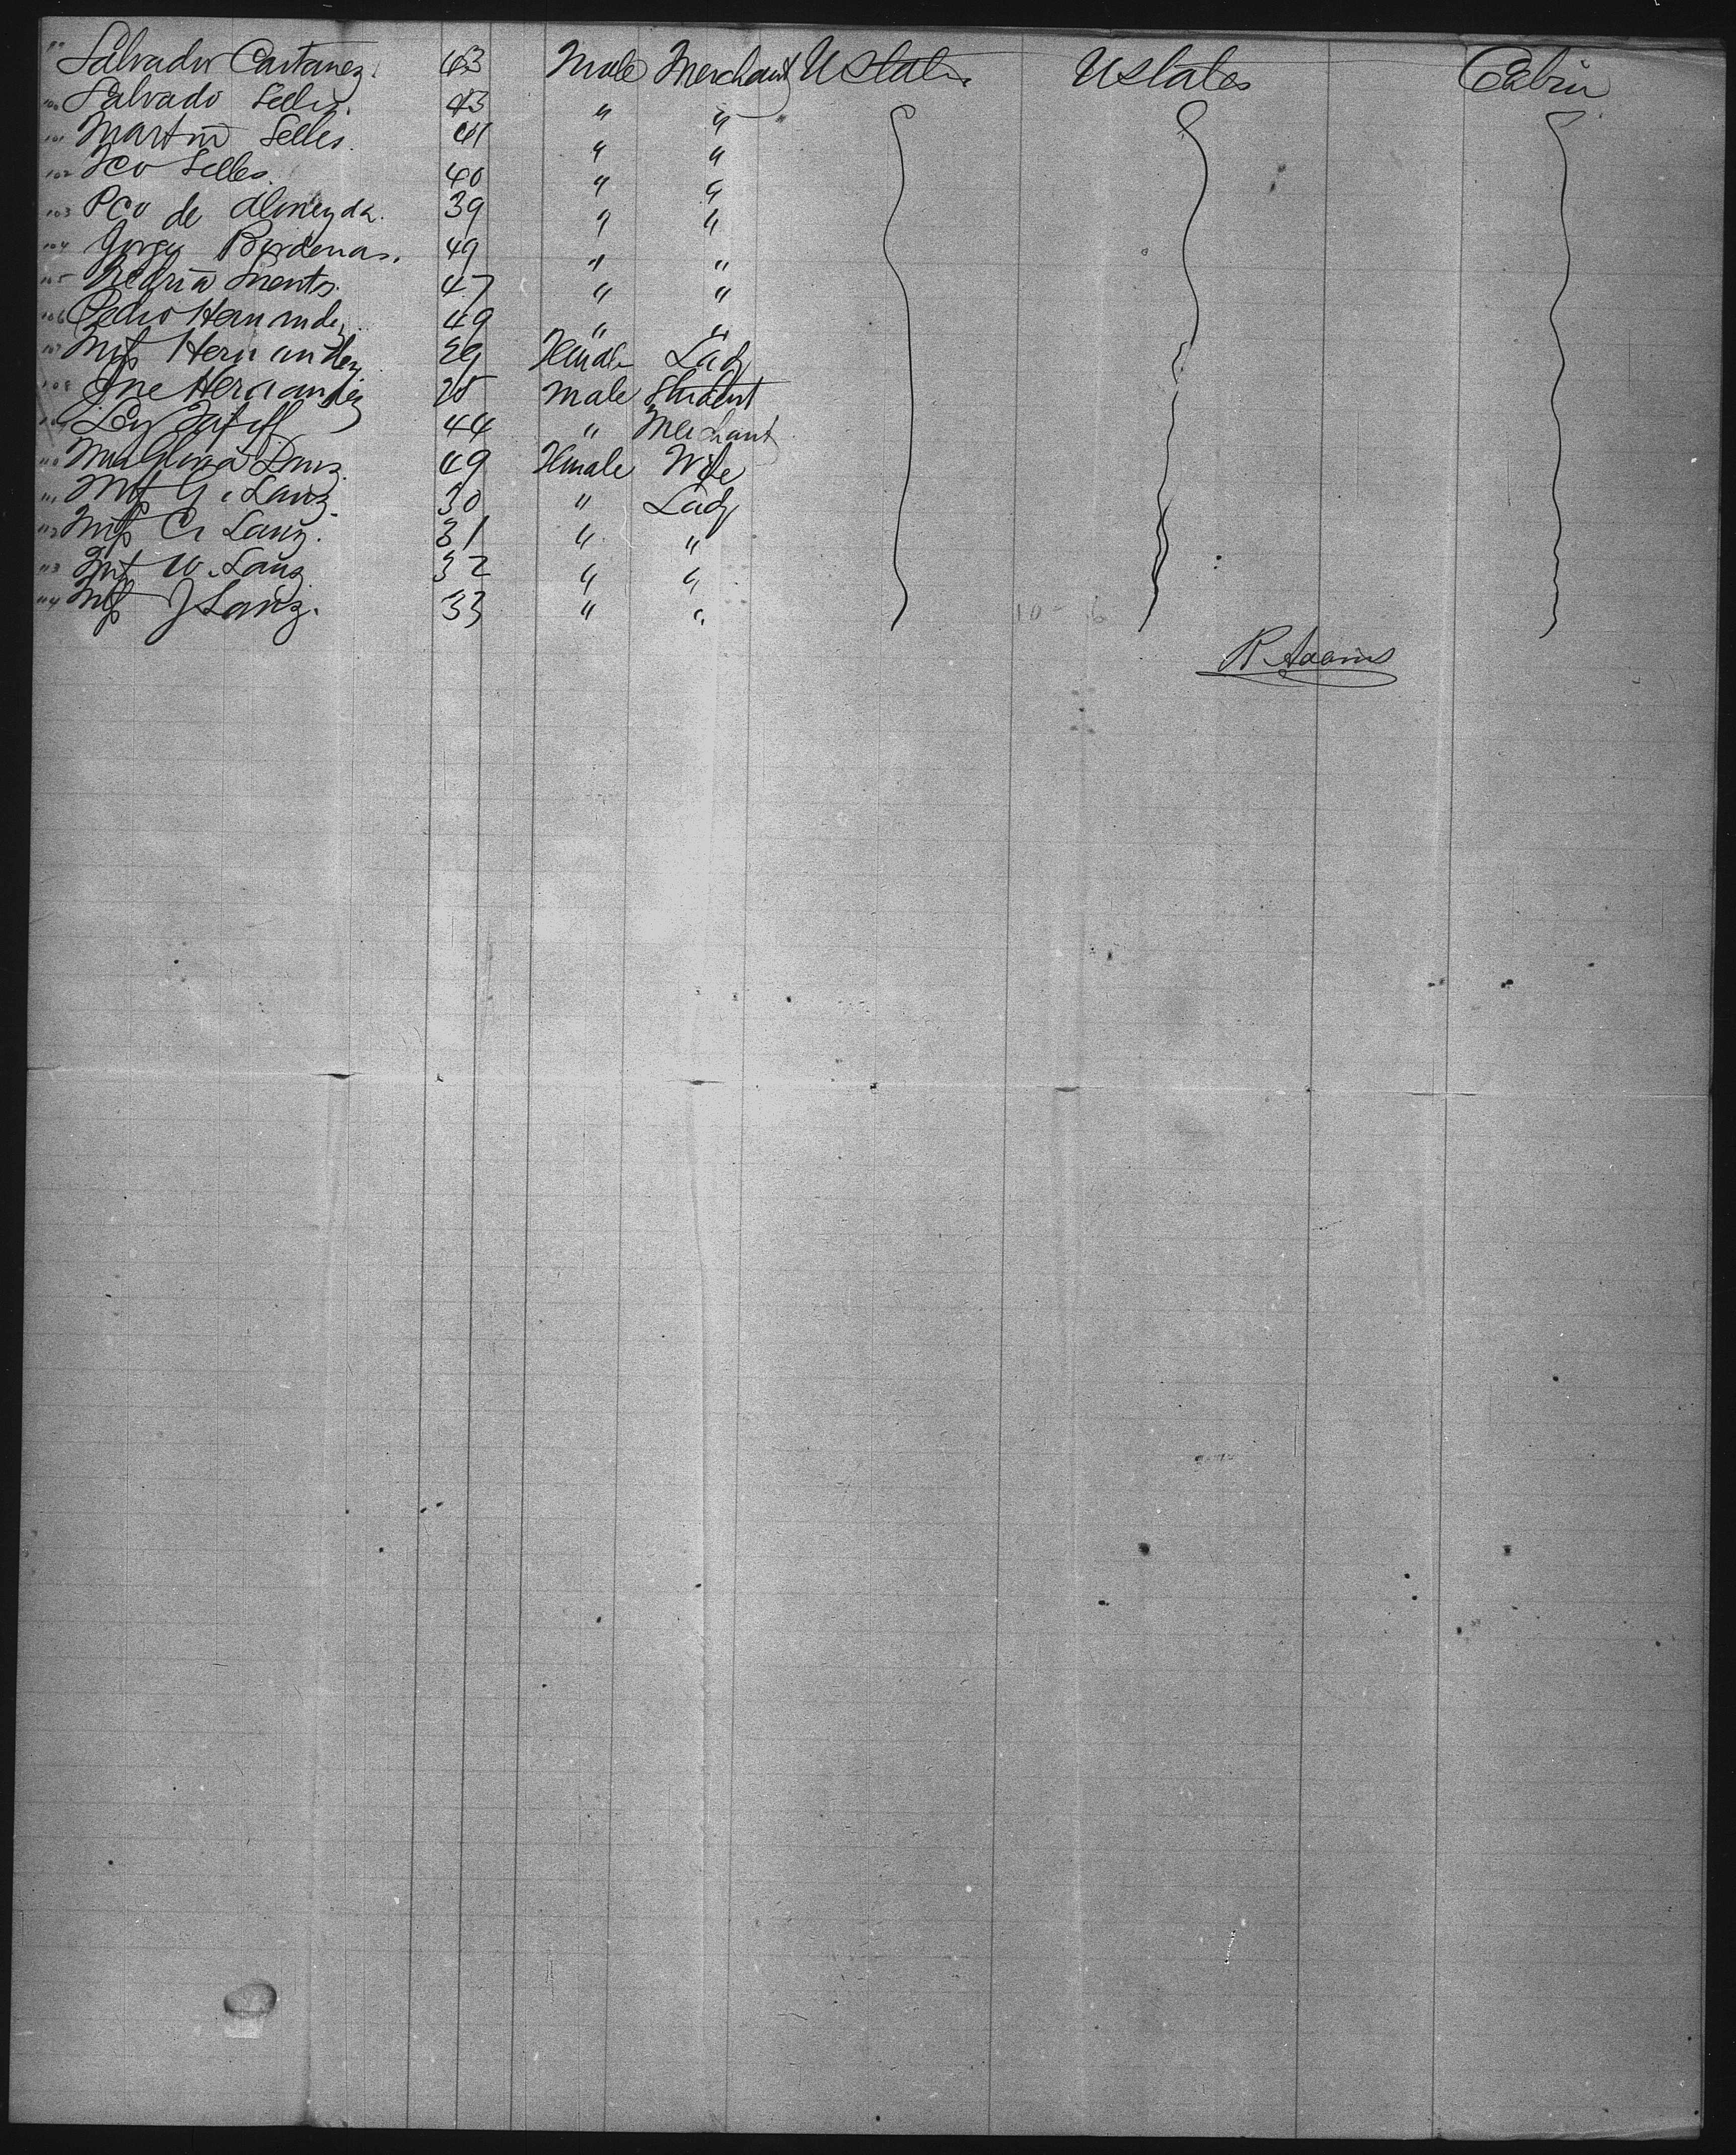 99 Salvador Castanez. 43 Male Merchant UStates UStates Cabin
100 Salvado Selles. 43 " "
101 Martin Selles. 41 " "
102 Fco Selles. 40 " "
103 Pco de Almeyda. 39 " "
104 Jorge Bardenas. 49 " "
105 47 " "
106 Pedro Hernandez 49 " "
107 Mrs Hernandez 29 Female Lady
108 Jne Hernandez 25 Male Student
109 44 " Merchant
110 49 Female Wife
111 Mrs G. Lanz. 30 " Lady
112 Mrs C. Lanz. 31 " "
113 W. Lanz 32 " "
114 Mrs J Lanz. 33 " "
R Adams